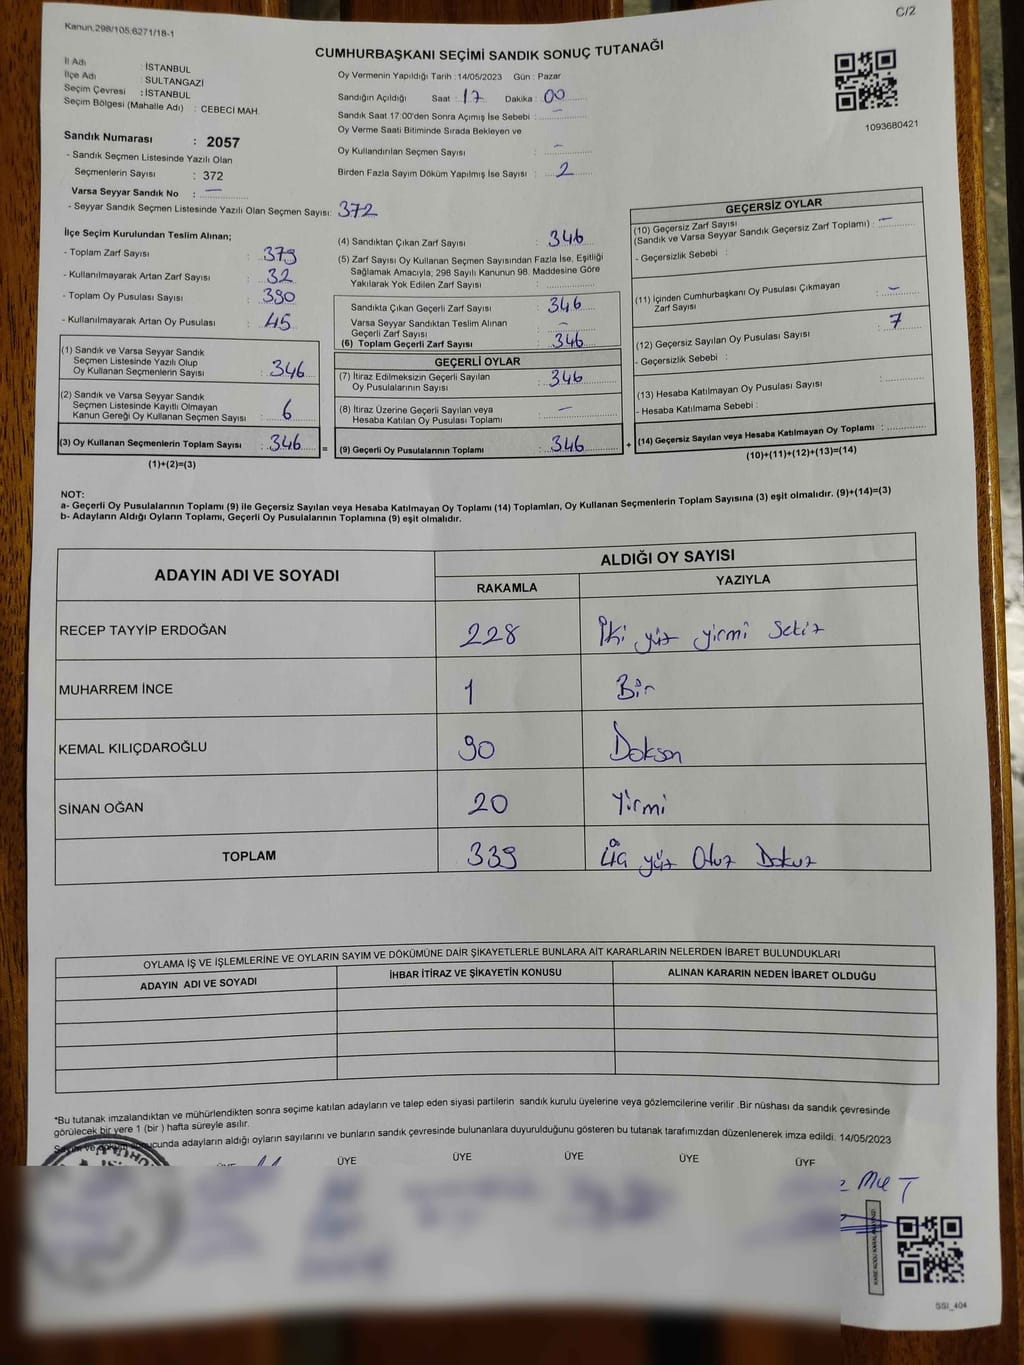 Kanun.298/105.6271/18-1
C/2
CUMHURBAŞKANI SEÇİMİ SANDIK SONUÇ TUTANAĞI
İl Adı : İSTANBUL
İlçe Adı : SULTANGAZİ
Seçim Çevresi : İSTANBUL
Seçim Bölgesi (Mahalle Adı) : CEBECİ MAH.
Sandık Numarası : 2057
- Sandık Seçmen Listesinde Yazılı Olan
Seçmenlerin Sayısı : 372
Varsa Seyyar Sandık No : —
- Seyyar Sandık Seçmen Listesinde Yazılı Olan Seçmen Sayısı: 372
Oy Vermenin Yapıldığı Tarih : 14/05/2023 Gün : Pazar
Sandığın Açıldığı Saat : 17 Dakika : 00
Sandık Saat 17:00'den Sonra Açımış İse Sebebi : —
Oy Verme Saati Bitiminde Sırada Bekleyen ve
Oy Kullandırılan Seçmen Sayısı : —
Birden Fazla Sayım Döküm Yapılmış İse Sayısı : 2
1093680421
İlçe Seçim Kurulundan Teslim Alınan;
- Toplam Zarf Sayısı : 379
- Kullanılmayarak Artan Zarf Sayısı : 32
- Toplam Oy Pusulası Sayısı : 390
- Kullanılmayarak Artan Oy Pusulası : 45
(1) Sandık ve Varsa Seyyar Sandık
Seçmen Listesinde Yazılı Olup
Oy Kullanan Seçmenlerin Sayısı : 346
(2) Sandık ve Varsa Seyyar Sandık
Seçmen Listesinde Kayıtlı Olmayan
Kanun Gereği Oy Kullanan Seçmen Sayısı : 6
(3) Oy Kullanan Seçmenlerin Toplam Sayısı : 346 =
(1)+(2)=(3)
(4) Sandıktan Çıkan Zarf Sayısı : 346
(5) Zarf Sayısı Oy Kullanan Seçmen Sayısından Fazla İse, Eşitliği
Sağlamak Amacıyla; 298 Sayılı Kanunun 98. Maddesine Göre
Yakılarak Yok Edilen Zarf Sayısı :
Sandıkta Çıkan Geçerli Zarf Sayısı : 346
Varsa Seyyar Sandıktan Teslim Alınan
Geçerli Zarf Sayısı : —
(6) Toplam Geçerli Zarf Sayısı : 346
GEÇERLİ OYLAR
(7) İtiraz Edilmeksizin Geçerli Sayılan
Oy Pusulalarının Sayısı : 346
(8) İtiraz Üzerine Geçerli Sayılan veya
Hesaba Katılan Oy Pusulası Toplamı : —
(9) Geçerli Oy Pusulalarının Toplamı : 346 +
GEÇERSİZ OYLAR
(10) Geçersiz Zarf Sayısı
(Sandık ve Varsa Seyyar Sandık Geçersiz Zarf Toplamı) : —
- Geçersizlik Sebebi :
(11) İçinden Cumhurbaşkanı Oy Pusulası Çıkmayan
Zarf Sayısı : —
(12) Geçersiz Sayılan Oy Pusulası Sayısı : 7
- Geçersizlik Sebebi :
(13) Hesaba Katılmayan Oy Pusulası Sayısı :
- Hesaba Katılmama Sebebi :
(14) Geçersiz Sayılan veya Hesaba Katılmayan Oy Toplamı :
(10)+(11)+(12)+(13)=(14)
NOT:
a- Geçerli Oy Pusulalarının Toplamı (9) ile Geçersiz Sayılan veya Hesaba Katılmayan Oy Toplamı (14) Toplamları, Oy Kullanan Seçmenlerin Toplam Sayısına (3) eşit olmalıdır. (9)+(14)=(3)
b- Adayların Aldığı Oyların Toplamı, Geçerli Oy Pusulalarının Toplamına (9) eşit olmalıdır.
ADAYIN ADI VE SOYADI ALDIĞI OY SAYISI
RAKAMLA YAZIYLA
RECEP TAYYİP ERDOĞAN 228 İki yüz yirmi Sekiz
MUHARREM İNCE 1 Bir
KEMAL KILIÇDAROĞLU 90 Doksan
SİNAN OĞAN 20 Yirmi
TOPLAM 339 Üç yüz Otuz Dokuz
OYLAMA İŞ VE İŞLEMLERİNE VE OYLARIN SAYIM VE DÖKÜMÜNE DAİR ŞİKAYETLERLE BUNLARA AİT KARARLARIN NELERDEN İBARET BULUNDUKLARI
ADAYIN ADI VE SOYADI İHBAR İTİRAZ VE ŞİKAYETİN KONUSU ALINAN KARARIN NEDEN İBARET OLDUĞU
*Bu tutanak imzalandıktan ve mühürlendikten sonra seçime katılan adayların ve talep eden siyasi partilerin sandık kurulu üyelerine veya gözlemcilerine verilir .Bir nüshası da sandık çevresinde
görülecek bir yere 1 (bir ) hafta süreyle asılır.
adayların aldığı oyların sayılarını ve bunların sandık çevresinde bulunanlara duyurulduğunu gösteren bu tutanak tarafımızdan düzenlenerek imza edildi. 14/05/2023
ÜYE ÜYE ÜYE ÜYE ÜYE
SSI_404